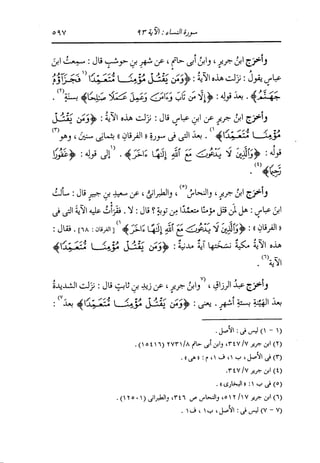 سورة النساء : الآية ٩٣
٥٩٧
وأخرج ابنُ جريرٍ ، وابنُ أبى حاتمٍ ، عن شهرِ بنِ حوشبٍ قال : سمِعتُ ابنَ
عباسٍ يقولُ : نزَلت هذه الآيةُ : ﴿وَمَن يَقْتُلْ مُؤْمِنًا مُّتَعَمِّدًا (١) فَجَزَآؤُهُ
جَهَنَّمُ﴾ . بعدَ قولِه : ﴿إِلَّا مَن تَابَ وَءَامَنَ وَعَمِلَ عَمَلًا صَٰلِحًا﴾ بسنةٍ (٢) .
وأخرج ابنُ جريرٍ عن ابنِ عباسٍ قال : نزَلت هذه الآيةُ : ﴿وَمَن يَقْتُلْ
مُؤْمِنًا مُّتَعَمِّدًا (١)﴾ . بعدَ التى فى سورةِ « الفرقانِ » بثمانى سنينَ ، وهو (٣)
قولُه : ﴿وَالَّذِينَ لَا يَدْعُونَ مَعَ اللَّهِ إِلَٰهًا ءَاخَرَ﴾ . (١) إلى قولِه : ﴿غَفُورًا
رَّحِيمًا﴾ (٤) .
وأخرج ابنُ جريرٍ ، والنحاسُ (٥) ، والطبرانىُّ ، عن سعيدِ بنِ جبيرٍ قال : سألتُ
ابنَ عباسٍ : هل لمن قتَل مؤمنًا متعمدًا مِن توبةٍ ؟ قال : لا . فقرَأتُ عليه الآيةَ التى فى
« الفرقانِ » : ﴿وَالَّذِينَ لَا يَدْعُونَ مَعَ اللَّهِ إِلَٰهًا ءَاخَرَ﴾ (١) [ الفرقان : ٦٨] . فقال :
هذه الآيةُ مكيةٌ نسَختها آيةٌ مدنيةٌ : ﴿وَمَن يَقْتُلْ مُؤْمِنًا مُّتَعَمِّدًا﴾
الآية (٦) .
وأخرج عبدُ الرزاقِ ، (٧) وابنُ جريرٍ ، عن زيدِ بنِ ثابتٍ قال : نزَلت الشديدةُ
بعدَ الهيِّنةِ بستةِ أشهرٍ . يعنى : ﴿وَمَن يَقْتُلْ مُؤْمِنًا مُّتَعَمِّدًا﴾ بعدَ (٧) :
(١ - ١) ليس فى : الأصل .
(٢) ابن جرير ٧/ ٣٤٧، وابن أبى حاتم ٨/ ٢٧٣١ (١٥٤١٦) .
(٣) فى الأصل، ب ١، ف ١، م : « هى » .
(٤) ابن جرير ٧/ ٣٤٧.
(٥) فى ب ١ : « البخارى » .
(٦) ابن جرير ١٧/ ٥١٢، والنحاس ص ٣٤٦، والطبرانى (١٢٥٠١) .
(٧ - ٧) ليس فى : الأصل، ب١ ، ف١ .